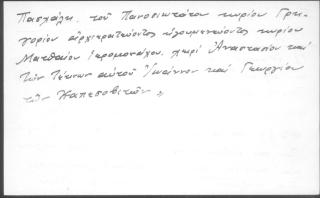 Πασχάλη. τοῦ Πανοσιωτάτου κυρίου Γρη-
γορίου ἀρχιερατεύοντος ἡγουμενεύοντος κυρίου
Ματθαίου ἱερομονάχου. χωρὶ Ἀναστασίου καὶ
τῶν τέκνων αὐτοῦ Ἰωάννου καὶ Γεωργίου
τῶν Καπεσοβιτῶν »